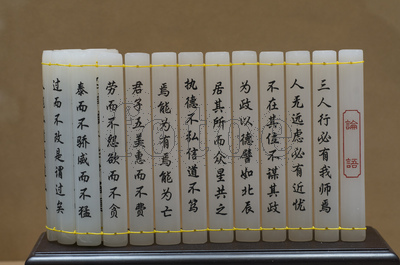 論語
三人行必有我师焉
人无远虑必有近忧
不在其位不谋其政
为政以德譬如北辰
居其所而众星共之
执德不弘信道不笃
焉能为有焉能为亡
君子五美惠而不费
劳而不怨欲而不贪
泰而不骄威而不猛
过而不改是谓过矣